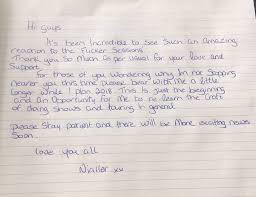 Hi guys
It's been Incredible to see Such an Amazing
reaction to the Flicker Sessions
Thank you So Much as per usual for your love and
Support.
for those of you wondering why Im not Stopping
nearer you this time please bear with me a little
longer while I plan 2018. This is Just the beginning
and an Opportunity for Me to re learn the Craft
of doing shows and touring In general
please Stay patient and there will be More exciting news
Soon.
love you all
Nialler xx